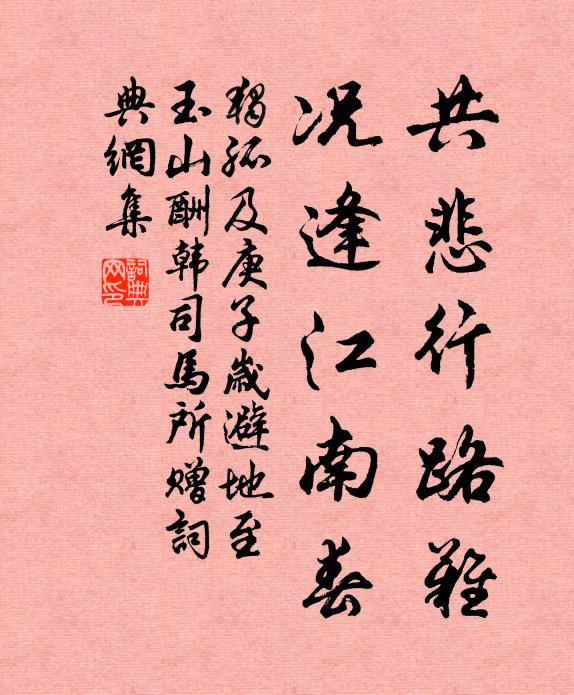 共悲行路難
况逢江南春
獨孤及庚子歲避地至
玉山酬韩司馬所贈詞
典網集
詞典网印